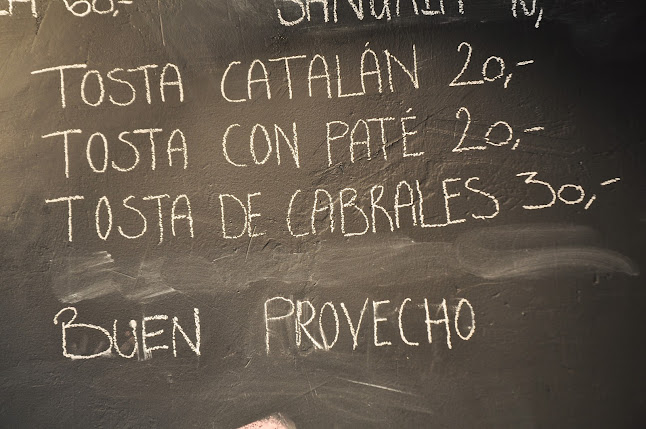 60,-
TOSTA CATALÁN 20,-
TOSTA CON PATÉ 20,-
TOSTA DE CABRALES 30,-
BUEN PROVECHO